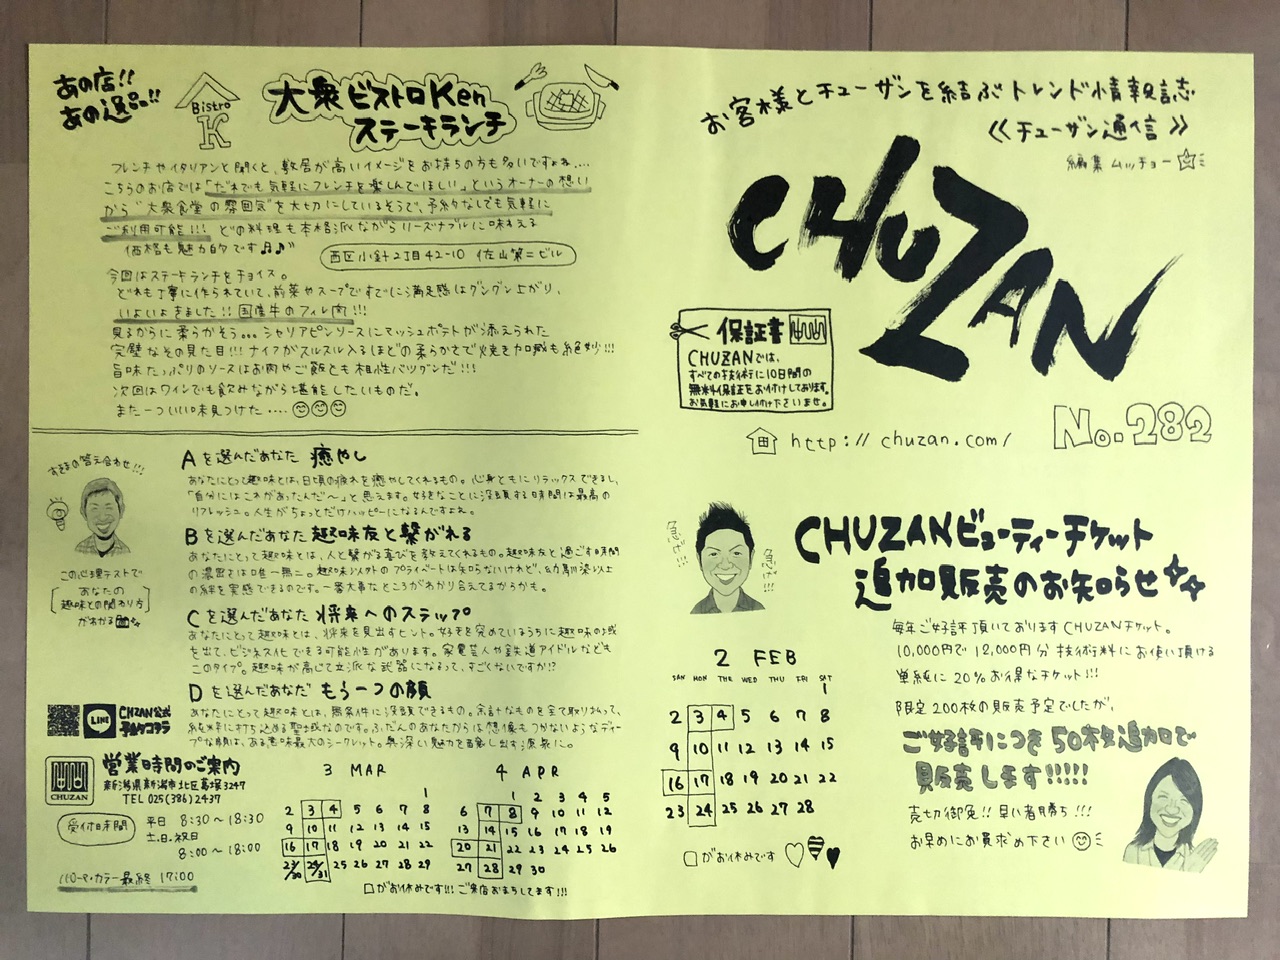 あの店!!
あの逸品!!
Bistro
K
大衆ビストロKen
ステーキランチ
フレンチやイタリアンと聞くと、敷居が高いイメージをお持ちの方も多いですよね....
こちらのお店では「だれでも気軽にフレンチを楽しんでほしい」というオーナーの想い
から"大衆食堂の雰囲気"を大切にしているそうで、予約なしでも気軽に
ご利用可能!!! どの料理も本格派ながらリーズナブルに味わえる
価格も魅力的です♫♪"
西区小針2丁目42-10 佐山第二ビル
今回はステーキランチをチョイス。
どれも丁寧に作られていて、前菜やスープですでに満足感はグングン上がり、
いよいよきました!! 国産牛のフィレ肉!!!
見るからに柔らかそう... シャリアピンソースにマッシュポテトが添えられた
完璧なその見た目!!! ナイフがスルスル入るほどの柔らかさで焼き加減も絶妙!!!
旨味たっぷりのソースはお肉やご飯とも相性バツグンだ!!!
次回はワインでも飲みながら堪能したいものだ。
また一ついい味見つけた....
お客様とチューザンを結ぶトレンド情報誌
《チューザン通信》
編集 ムッチョー
CHUZAN
保証書
CHUZANでは、
すべての技術に10日間の
無料保証をお付けしております。
お気軽にお申し付け下さいませ。
No.282
http://chuzan.com/
おきまの答え合わせ!!!
この心理テストで
あなたの
趣味との関わり方
がわかる
Aを選んだあなた 癒やし
あなたにとって趣味とは、日頃の疲れを癒やしてくれるもの。心身ともにリラックスできるし、
「自分にはこれがあったんだ〜」と思えます。好きなことに没頭する時間は最高の
リフレッシュ。人生がちょっとだけハッピーになるんですよね。
Bを選んだあなた 趣味友と繋がれる
あなたにとって趣味とは、人と繋がる喜びを教えてくれるもの。趣味友と過ごす時間
の濃密さは唯一無二。趣味以外のプライベートは知らないけれど、幼馴染以上
の絆を実感できるのです。一番大事なところがわかり合えてるからかも。
Cを選んだあなた 将来へのステップ
あなたにとって趣味とは、将来を見出すヒント。好きを究めているうちに趣味の域
を出て、ビジネス化できる可能性があります。家電芸人や鉄道アイドルなども
このタイプ。趣味が高じて立派な武器になるって、すごくないですか!?
Dを選んだあなた もう一つの顔
あなたにとって趣味とは、無条件に没頭できるもの。余計なものを全て取りはらって、
純粋に打ち込める聖域なのです。ふだんのあなたからは想像もつかないようなディー
プな顔は、ある意味最大のシークレット。奥深い魅力を醸し出す源泉に。
LINE
CHZAN公式
アカウントはコチラ
CHUZAN
営業時間のご案内
新潟県新潟市北区葛塚3247
TEL 025(386)2437
受付時間
平日 8:30〜18:30
土.日.祝日
8:00〜18:00
パーマ・カラー最終 17:00
3 MAR
1
2 3 4 5 6 7 8
9 10 11 12 13 14 15
16 17 18 19 20 21 22
23/30 24/31 25 26 27 28 29
4 APR
1 2 3 4 5
6 7 8 9 10 11 12
13 14 15 16 17 18 19
20 21 22 23 24 25 26
27 28 29 30
□がお休みです!!! ご来店おまちしてます!!!
CHUZANビューティーチケット
追加販売のお知らせ
毎年ご好評頂いておりますCHUZANチケット。
10,000円で 12,000円分 技術料にお使い頂ける
単純に20%お得なチケット!!!
限定200枚の販売予定でしたが、
ご好評につき50枚追加で
販売します!!!!!
売切御免!! 早い者勝ち!!!
お早めにお買求め下さい
2 FEB
SAN MON TUE WED THU FRI SAT
1
2 3 4 5 6 7 8
9 10 11 12 13 14 15
16 17 18 19 20 21 22
23 24 25 26 27 28
□がお休みです